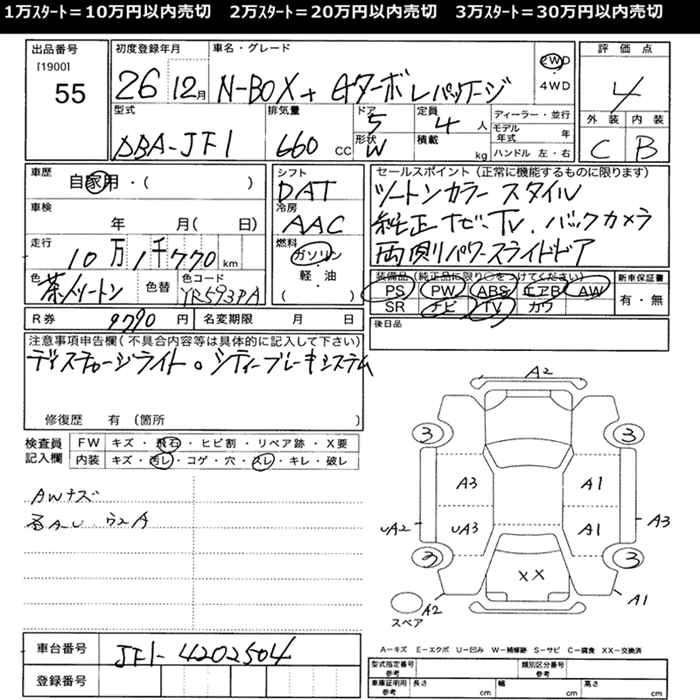 1万ｽﾀｰﾄ＝10万円以内売切　2万ｽﾀｰﾄ＝20万円以内売切　3万ｽﾀｰﾄ＝30万円以内売切
出品番号
[1900]
55
初度登録年月
26 12月
車名・グレード
N-BOX+ Gターボ Lパッケージ
2WD
・
4WD
評価点
4
型式
DBA-JF1
排気量
660 CC
ドア
5
形状
W
定員
4 人
積載
kg
ディーラー・並行
モデル年式 年
ハンドル 左・右
外装 内装
C B
車歴
自家用・( )
車検
年 月( 日)
走行
10万1千770 km
色
茶メツートン
色替
色コード
YR593PA
シフト
DAT
冷房
AAC
燃料
ガソリン
軽・油
( )
セールスポイント(正常に機能するものに限ります)
ツートンカラー スタイル
純正ナビ、TV、バックカメラ
両側パワースライドドア
装備品(純正品に限り○をつけてください)
PS PW ABS エアB AW
SR ナビ TV カワ
新車保証書
有・無
後日品
R券 9790 円
名変期限 月 日
注意事項申告欄(不具合内容等は具体的に記入して下さい)
ディスチャージライト。シティーブレーキシステム
修復歴 有 (箇所 )
検査員
記入欄
FW キズ・飛石・ヒビ割・リペア跡・X要
内装 キズ・汚レ・コゲ・穴・スレ・キレ・破レ
AWキズ
A2
3 3
A3 A1
UA2 UA3 A1 A3
3 3
XX
A2 A1
スペア
A－キズ E－エクボ U－凹み W－補修跡 S－サビ C－腐食 XX－交換済
車台番号
JF1-4202504
登録番号
型式指定番号
参考
類別区分番号
参考
車庫証明用
参考
長さ cm 幅 cm 高さ cm